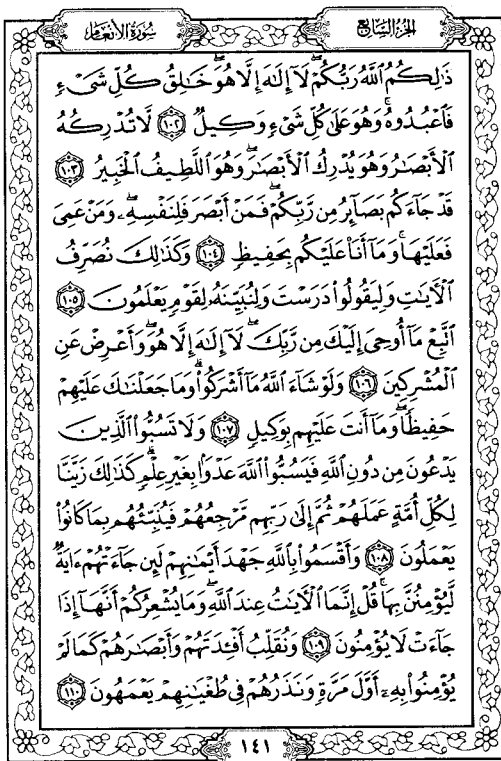 سُورَةُ الأَنْعَام
الجُزْءُ السَّابِعُ
ذَٰلِكُمُ ٱللَّهُ رَبُّكُمْ ۖ لَآ إِلَٰهَ إِلَّا هُوَ ۖ خَٰلِقُ كُلِّ شَىْءٍ
فَٱعْبُدُوهُ ۚ وَهُوَ عَلَىٰ كُلِّ شَىْءٍ وَكِيلٌ ١٠٢ لَّا تُدْرِكُهُ
ٱلْأَبْصَٰرُ وَهُوَ يُدْرِكُ ٱلْأَبْصَٰرَ ۖ وَهُوَ ٱللَّطِيفُ ٱلْخَبِيرُ ١٠٣
قَدْ جَآءَكُم بَصَآئِرُ مِن رَّبِّكُمْ ۖ فَمَنْ أَبْصَرَ فَلِنَفْسِهِۦ ۖ وَمَنْ عَمِىَ
فَعَلَيْهَا ۚ وَمَآ أَنَا۠ عَلَيْكُم بِحَفِيظٍ ١٠٤ وَكَذَٰلِكَ نُصَرِّفُ
ٱلْءَايَٰتِ وَلِيَقُولُوا۟ دَرَسْتَ وَلِنُبَيِّنَهُۥ لِقَوْمٍ يَعْلَمُونَ ١٠٥
ٱتَّبِعْ مَآ أُوحِىَ إِلَيْكَ مِن رَّبِّكَ ۖ لَآ إِلَٰهَ إِلَّا هُوَ ۖ وَأَعْرِضْ عَنِ
ٱلْمُشْرِكِينَ ١٠٦ وَلَوْ شَآءَ ٱللَّهُ مَآ أَشْرَكُوا۟ ۗ وَمَا جَعَلْنَٰكَ عَلَيْهِمْ
حَفِيظًا ۖ وَمَآ أَنتَ عَلَيْهِم بِوَكِيلٍ ١٠٧ وَلَا تَسُبُّوا۟ ٱلَّذِينَ
يَدْعُونَ مِن دُونِ ٱللَّهِ فَيَسُبُّوا۟ ٱللَّهَ عَدْوًۢا بِغَيْرِ عِلْمٍ ۗ كَذَٰلِكَ زَيَّنَّا
لِكُلِّ أُمَّةٍ عَمَلَهُمْ ثُمَّ إِلَىٰ رَبِّهِم مَّرْجِعُهُمْ فَيُنَبِّئُهُم بِمَا كَانُوا۟
يَعْمَلُونَ ١٠٨ وَأَقْسَمُوا۟ بِٱللَّهِ جَهْدَ أَيْمَٰنِهِمْ لَئِن جَآءَتْهُمْ ءَايَةٌ
لَّيُؤْمِنُنَّ بِهَا ۚ قُلْ إِنَّمَا ٱلْءَايَٰتُ عِندَ ٱللَّهِ ۖ وَمَا يُشْعِرُكُمْ أَنَّهَآ إِذَا
جَآءَتْ لَا يُؤْمِنُونَ ١٠٩ وَنُقَلِّبُ أَفْـِٔدَتَهُمْ وَأَبْصَٰرَهُمْ كَمَا لَمْ
يُؤْمِنُوا۟ بِهِۦٓ أَوَّلَ مَرَّةٍ وَنَذَرُهُمْ فِى طُغْيَٰنِهِمْ يَعْمَهُونَ ١١٠
١٤١